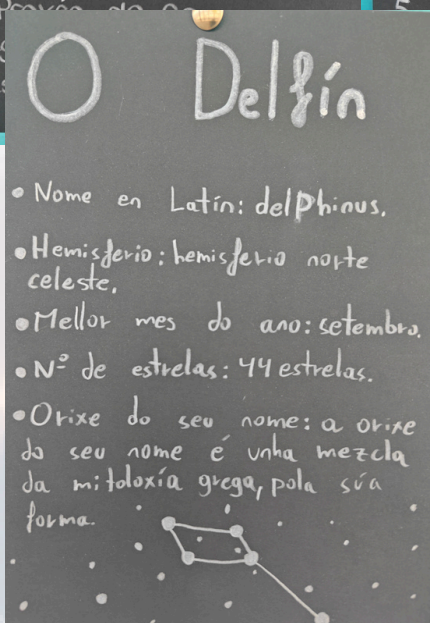 O Delfín
• Nome en Latín: delphinus.
• Hemisferio: hemisferio norte
celeste.
• Mellor mes do ano: setembro.
• Nº de estrelas: 44 estrelas.
• Orixe do seu nome: a orixe
do seu nome é unha mezcla
da mitoloxía grega, pola súa
forma.